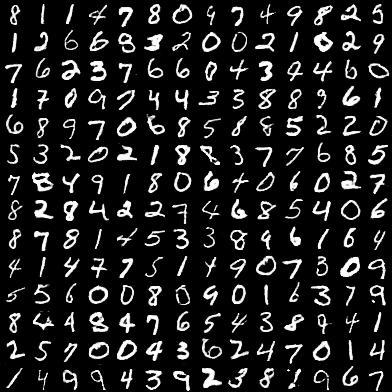 8 1 1 4 7 8 0 9 7 4 9 8 2 5
1 2 6 6 8 3 2 0 0 2 1 0 2 9
7 6 2 3 7 6 6 0 4 3 4 4 6 0
1 7 0 9 7 4 4 3 3 8 8 9 6 1
6 8 9 7 0 6 8 5 8 8 5 2 2 0
5 3 2 0 2 1 8 8 3 7 7 6 8 5
7 8 4 9 1 8 0 6 4 0 6 0 2 7
8 2 8 4 2 2 7 4 6 8 5 4 0 6
8 7 8 1 4 5 3 3 8 9 6 1 6 4
4 1 4 7 7 5 1 4 9 0 7 3 0 9
5 5 6 0 0 8 0 9 0 1 6 3 7 9
8 4 4 8 4 7 6 5 4 3 8 9 4 1
2 5 7 0 0 4 3 6 2 4 7 0 1 4
1 4 9 9 4 3 9 2 3 8 1 9 6 7